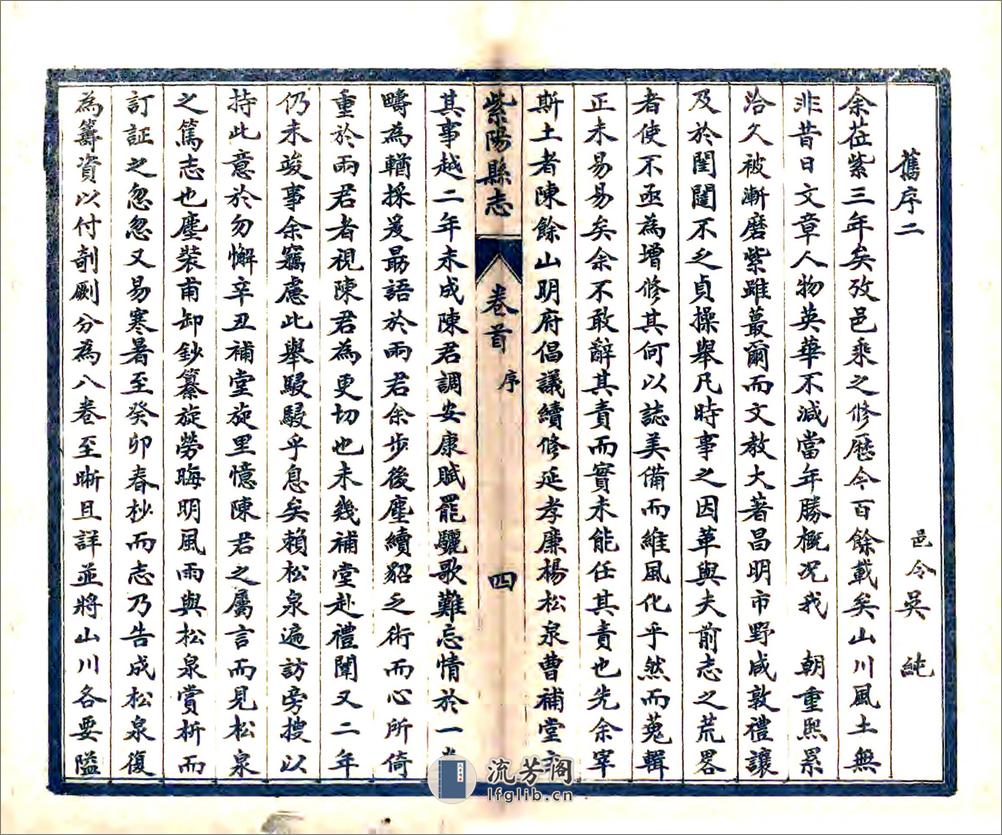 舊序二
邑令吳 純
余莅紫三年矣攷邑乘之修歷今百餘載矣山川風土無
非昔日文章人物英華不減當年勝概况我 朝重熙累
洽久被漸磨紫雖蕞爾而文教大著昌明市野咸敦禮讓
及於閨闥不乏貞操舉凡時事之因革與夫前志之荒畧
者使不亟為增修其何以誌美備而維風化乎然而蒐輯
正未易易矣余不敢辭其責而實未能任其責也先余宰
斯土者陳餘山明府倡議續修延孝廉楊松泉曹補堂
紫陽縣志
卷首
序
四
其事越二年未成陳君調安康賦罷驪歌難忘情於一
疇為輶採爰勗語於兩君余步後塵續貂乏術而心所倚
重於兩君者視陳君為更切也未幾補堂赴禮闈又二年
仍未竣事余竊慮此舉駸駸乎息矣賴松泉遍訪旁搜以
持此意於勿懈辛丑補堂旋里憶陳君之屬言而見松泉
之篤志也塵裝甫卸鈔纂旋勞晦明風雨與松泉賞析而
訂証之忽忽又易寒暑至癸卯春杪而志乃告成松泉復
為籌資以付剞劂分為八卷至晰且詳並將山川各要隘
流芳阁
lfglib.cn